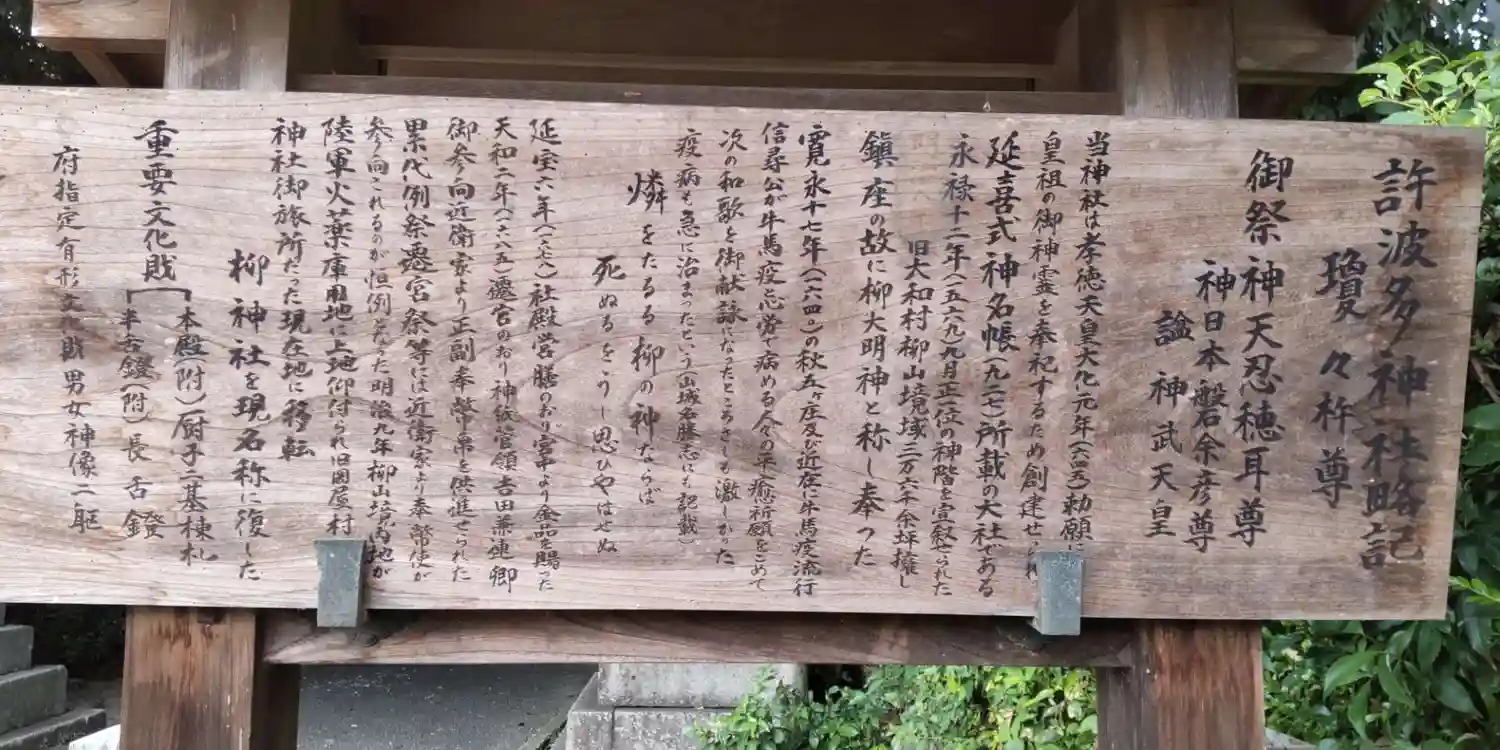 許波多神社略記
御祭神
瓊々杵尊
天忍穂耳尊
神日本磐余彦尊
諡 神武天皇
当神社は孝徳天皇大化元年(六四五)勅願に
皇祖の御神霊を奉祀するため創建せられ
延喜式神名帳(九二七)所載の大社である
永禄十二年(一五六九)九月正一位の神階を宣叙せられた
旧大和村柳山境域三万六千余坪擁し
鎮座の故に柳大明神と称し奉った
寛永十七年(一六四〇)の秋五ヶ庄及び近在に牛馬疫流行
信尋公が牛馬疫心労で病める人々の平癒祈願をこめて
次の和歌を御献詠になったところさしもの激しかった
疫病も急に治まったという(山城名勝志にも記載)
燐をたるる柳の神ならば
死ぬるをうし思ひやはせぬ
延宝六年(一六七八)社殿営膳のおり宮中より金品を賜った
天和二年(一六八五)遷宮のおり神祇管領吉田兼連卿
御参向近衛家より正副奉幣帛を供進せられた
累代例祭遷宮祭等には近衛家より奉幣使が
参向されるのが恒例となった明治九年柳山境内地が
陸軍火薬庫用地に上地仰付られ旧岡屋村
神社御旅所だった現在地に移転
柳神社を現名称に復した
重要文化財[本殿(附)厨子二基棟札
半古鐙(附)長舌鐙
府指定有形文化財男女神像二躯